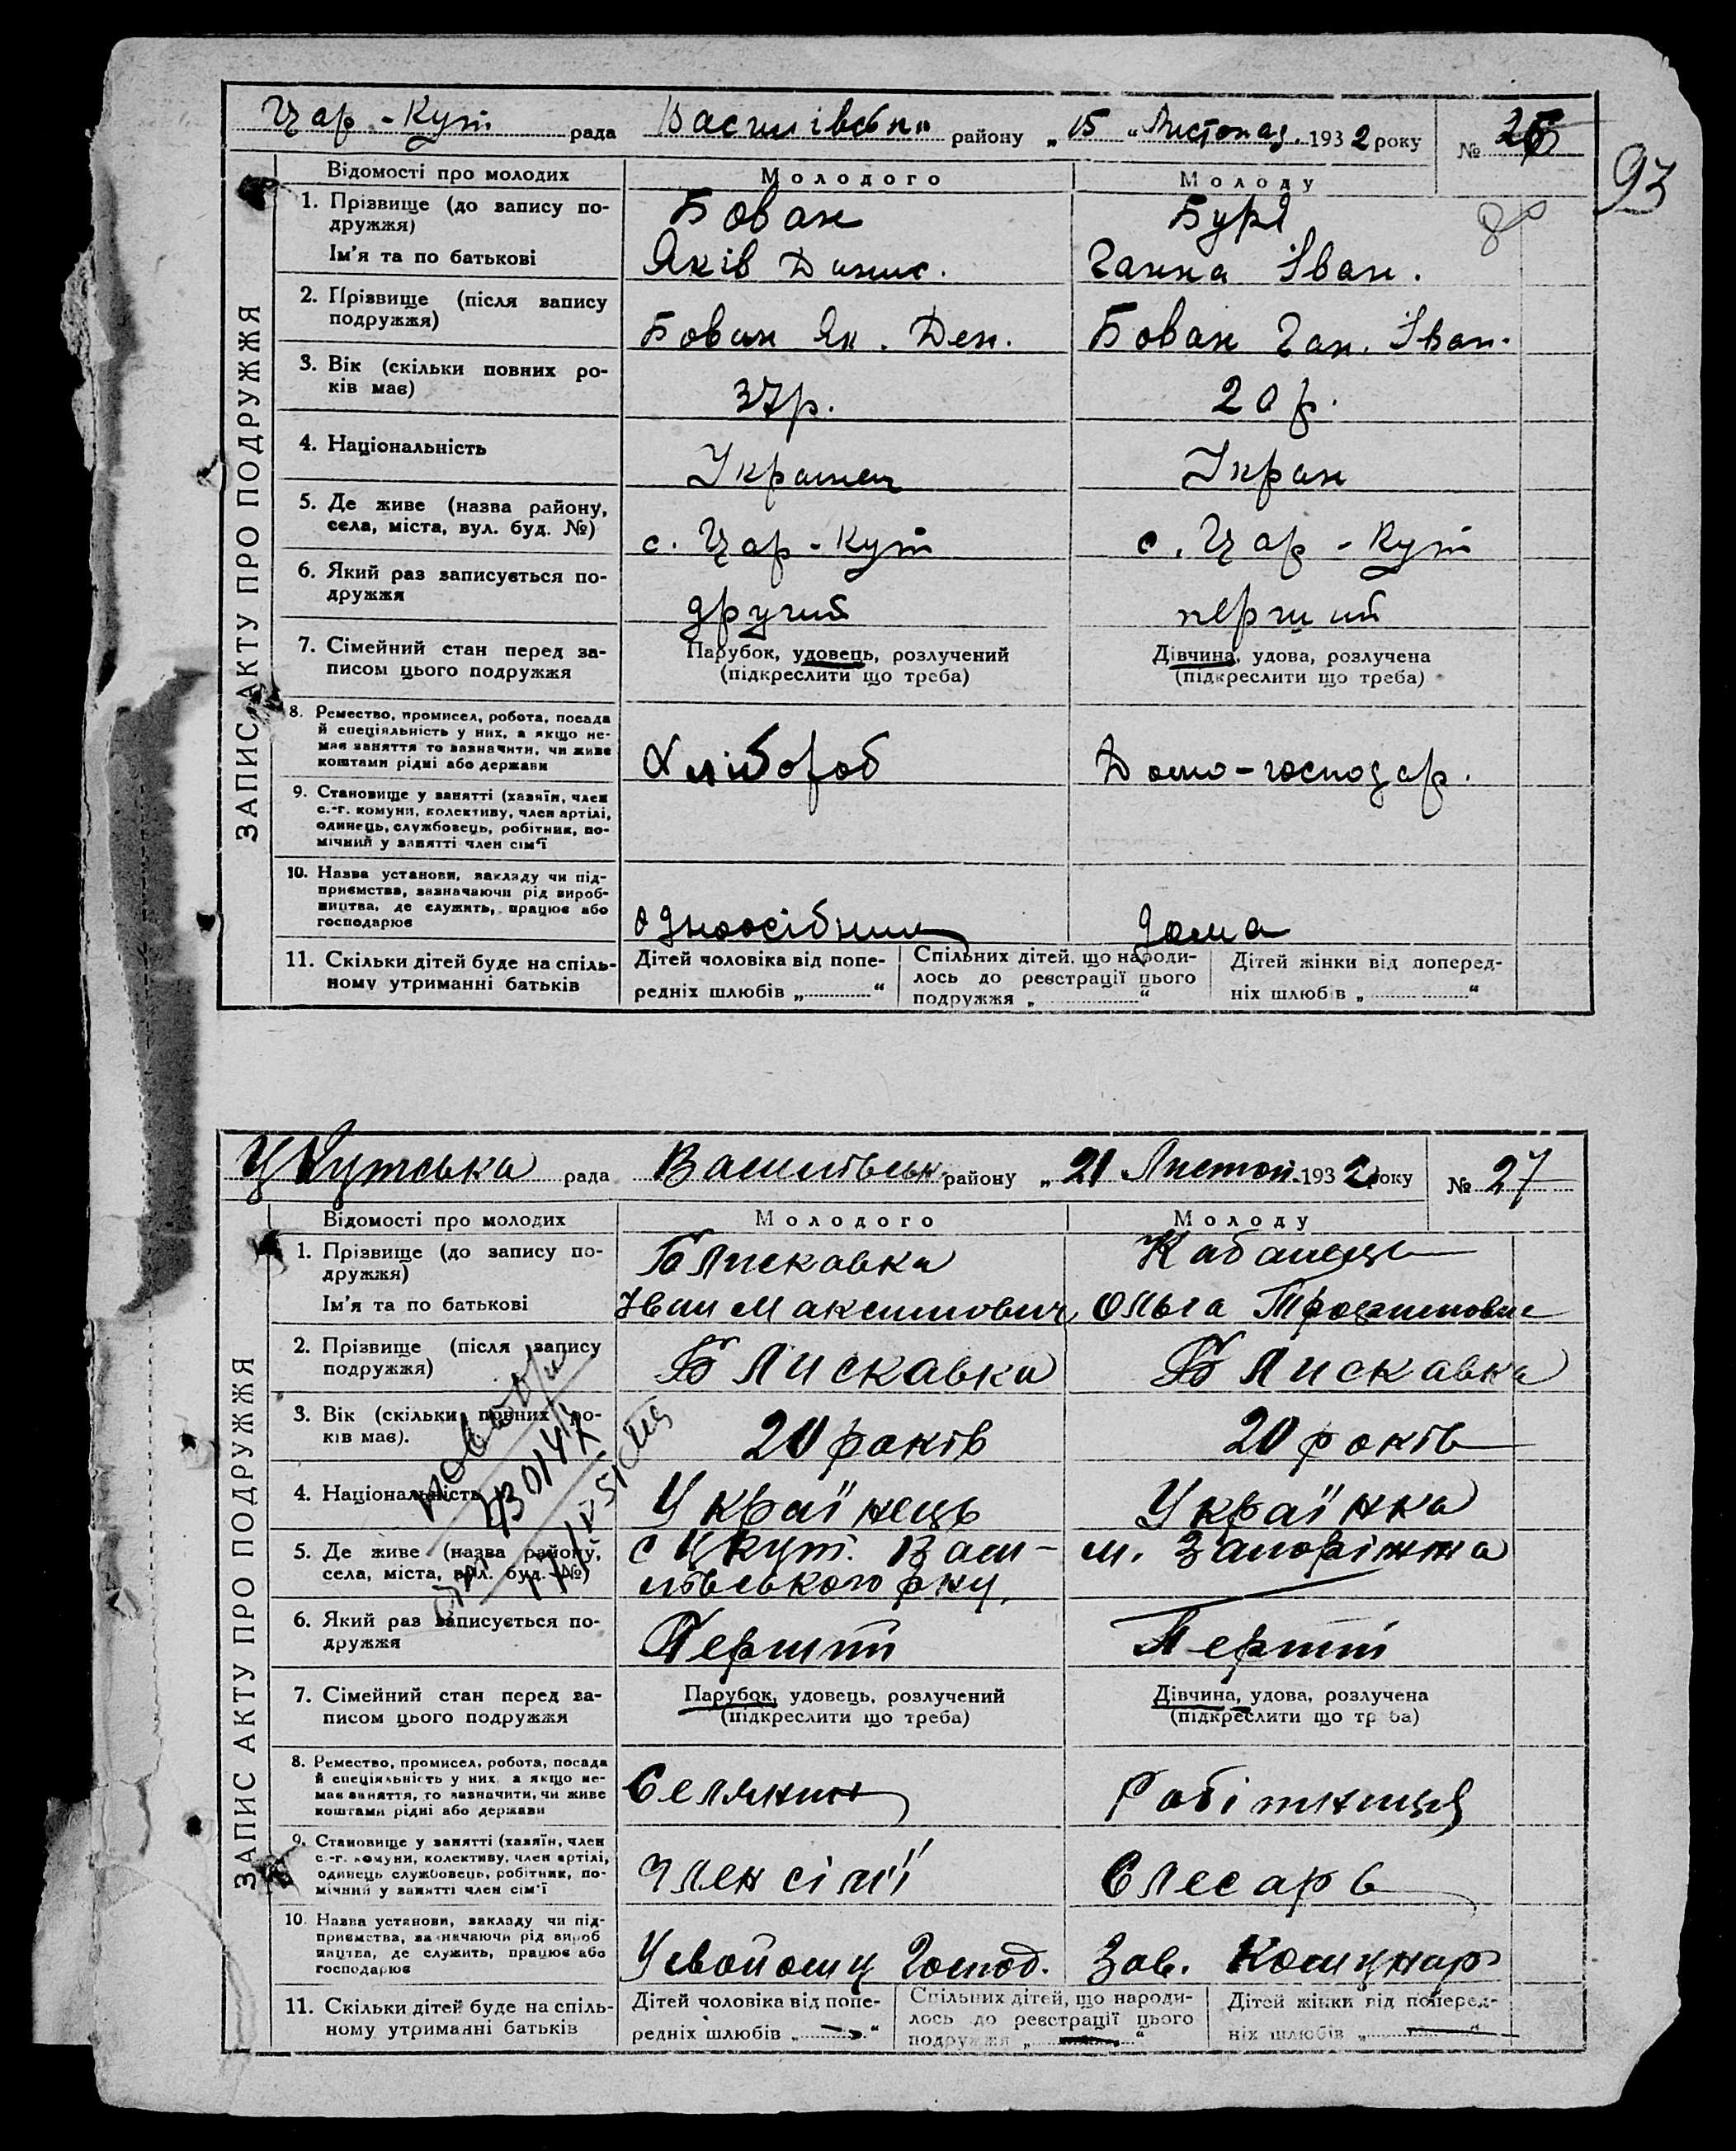 Цар-Кут рада Василівськ району „15 " Листопад. 1932 року № 26
93
Відомості про молодих Молодого Молоду
1. Прізвище (до запису по-
дружжя) Бован Буря
Ім'я та по батькові Яків Данил. Ганна Іван.
2. Прізвище (після запису
подружжя) Бован Як. Дан. Бован Ган. Іван.
3. Вік (скільки повних ро-
ків має) 37р. 20р.
4. Національність Українец Укран
5. Де живе (назва району,
села, міста, вул. буд. №) с. Цар-Кут с. Цар-Кут
6. Який раз записується по-
дружжя другий перший
7. Сімейний стан перед за-
писом цього подружжя
Парубок, удовець, розлучений
(підкреслити що треба)
Дівчина, удова, розлучена
(підкреслити що треба)
8. Ремество, промисел, робота, посада
й спеціяльність у них, а якщо не-
має заняття то зазначити, чи живе
коштами рідні або держави
Хлібороб Домо-господар.
9. Становище у занятті (хазяїн, член
с.-г. комуни, колективу, член артілі,
одинець, службовець, робітник, по-
мічний у занятті член сім'ї
10. Назва установи, закладу чи під-
приємства, зазначаючи рід вироб-
ництва, де служить, працює або
господарює
одноосібник дома
11. Скільки дітей буде на спіль-
ному утриманні батьків
Дітей чоловіка від попе-
редніх шлюбів „ "
Спільних дітей, що народи-
лось до реєстрації цього
подружжя „ "
Дітей жінки від поперед-
ніх шлюбів „ "
ЗАПИС АКТУ ПРО ПОДРУЖЖЯ
Ц Кутська рада Василівськ району „21 Листоп. 1932 року № 27
Відомості про молодих Молодого Молоду
1. Прізвище (до запису по-
дружжя) Блискавка Кабанець
Ім'я та по батькові Іван Максимович Ольга Трофимовна
2. Прізвище (після запису
подружжя) Блискавка Блискавка
3. Вік (скільки повних ро-
ків має). 20 років 20 років
4. Національність Українець Українка
5. Де живе (назва району,
села, міста, вул. буд. №)
с Цкут. Васи-
лівського р-ну, м. Запоріжжа
6. Який раз записується по-
дружжя Перший Перший
7. Сімейний стан перед за-
писом цього подружжя
Парубок, удовець, розлучений
(підкреслити що треба)
Дівчина, удова, розлучена
(підкреслити що треба)
8. Ремество, промисел, робота, посада
й спеціяльність у них, а якщо не-
має заняття, то зазначити, чи живе
коштами рідні або держави
Селянин Робітниця
9. Становище у занятті (хазяїн, член
с.-г. комуни, колективу, член артілі,
одинець службовець, робітник, по-
мічний у занятті член сім'ї
Член сім'ї Слесарь
10. Назва установи, закладу чи під-
приємства, зазначаючи рід вироб
ництва, де служить, працює або
господарює
У свойому Господ. Зав. Комунар
11. Скільки дітей буде на спіль-
ному утриманні батьків
Дітей чоловіка від попе-
редніх шлюбів „ — "
Спільних дітей, що народи-
лось до реєстрації цього
подружжя „ — "
Дітей жінки від поперед-
ніх шлюбів „ — "
ЗАПИС АКТУ ПРО ПОДРУЖЖЯ